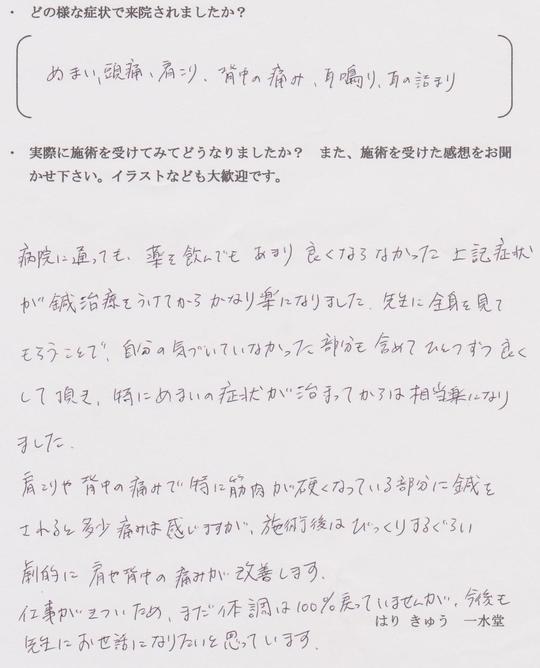 ・ どの様な症状で来院されましたか？
めまい、頭痛、肩こり、背中の痛み、耳鳴り、耳の詰まり
・ 実際に施術を受けてみてどうなりましたか？ また、施術を受けた感想をお聞
かせ下さい。イラストなども大歓迎です。
病院に通っても、薬を飲んでもあまり良くならなかった上記症状
が鍼治療をうけてからかなり楽になりました。先生に全身を見て
もらうことで、自分の気づいていなかった部分も含めてひとつずつ良く
して頂き、特にめまいの症状が治まってからは相当楽になり
ました。
肩こりや背中の痛みで特に筋肉が硬くなっている部分に鍼を
されると多少痛みは感じますが、施術後はびっくりするぐらい
劇的に肩や背中の痛みが改善します。
仕事がきついため、まだ体調は100%戻っていませんが、今後も
はり きゅう 一水堂
先生にお世話になりたいと思っています。